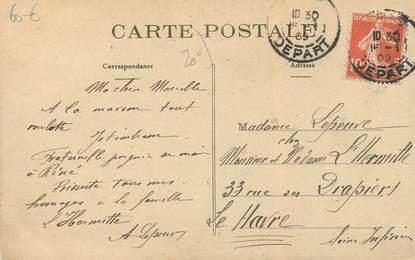 60 €
CARTE POSTALE
Correspondance
Adresse
20
10 30
16 - 1
09
DEPART
10 30
16 - 1
09
DEPART
REPUBLIQUE FRANCAISE
10
Ma chère Marcelle
A la maison tout
roulotte
Je t'embrasse
Fraternelle poignée de main
à René
Présente tous mes
hommages à la famille
L'Hermitte
A. Lepeuve
Madame Lepeuve
chez
Monsieur et Madame L'Hermitte
33 rue des Drapiers
Le Havre
Seine Inférieure